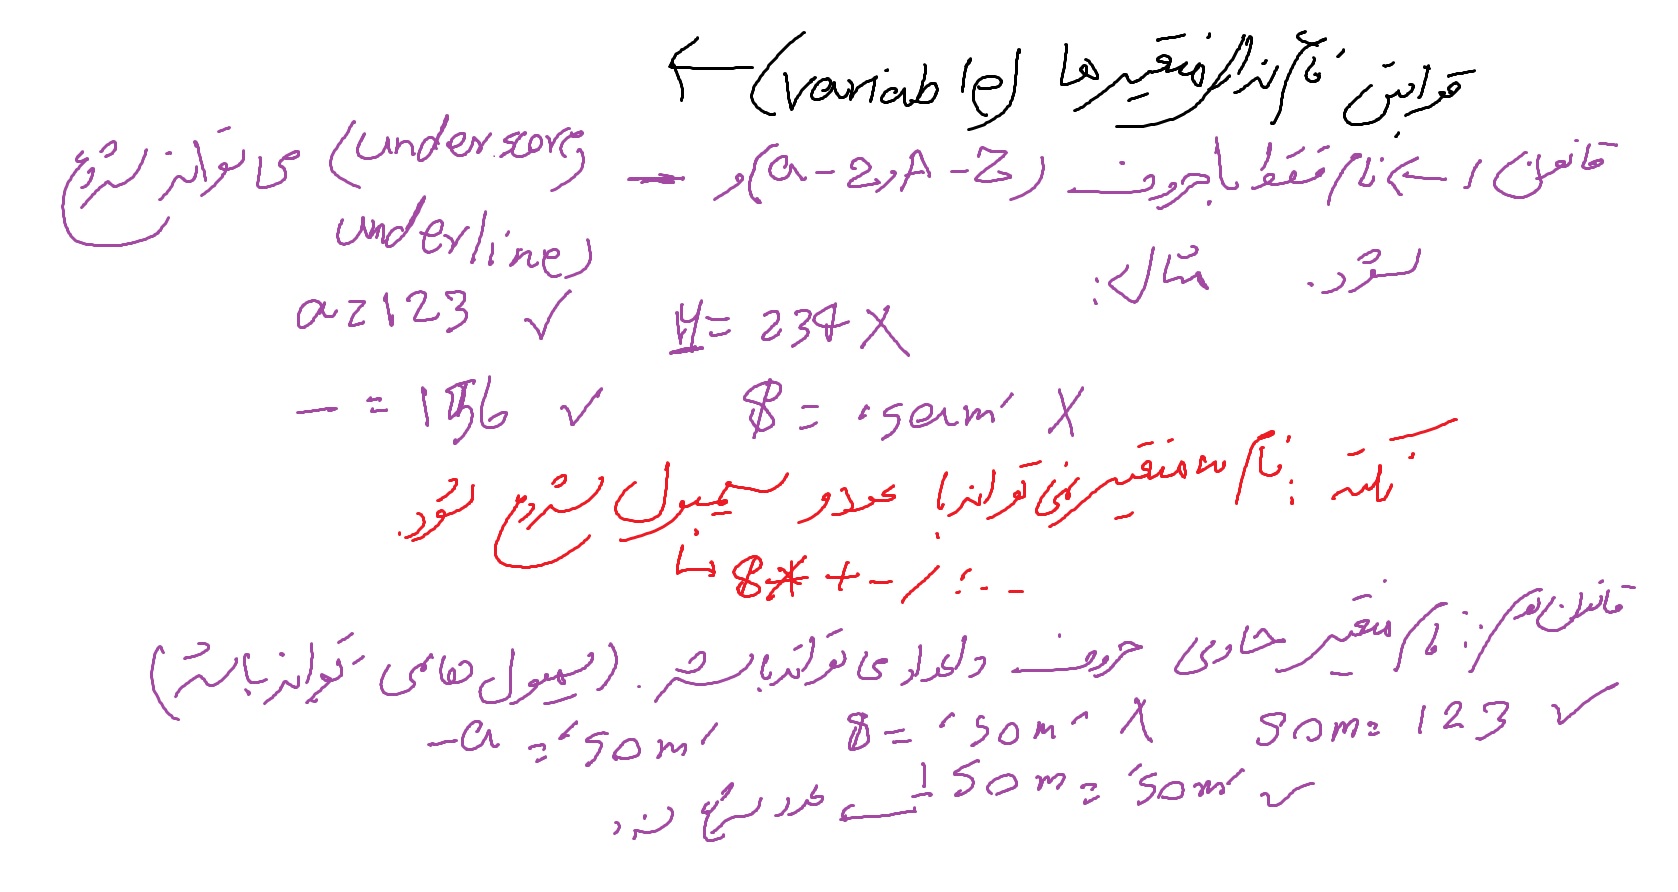 قوانین نام گذاری متغیر ها (variable) ←
قانون ۱ ← نام فقط با حروف (a-z, A-Z) و _ (underscore می تواند شروع
underline)
شود. مثال:
a = 123 ✓ = 234 X
_ = 156 ✓ $ = 'som' X
نکته: نام متغیر نمی تواند با عدد و سیمبول شروع شود.
↳ $ * + - / ; . . -
قانون دوم: نام متغیر حاوی حروف و اعداد می تواند باشد. (سیمبول ها نمی تواند باشد)
_a = 'som' $ = 'som' X som = 123 ✓
1som = 'som' ✓
← عدد شروع شد